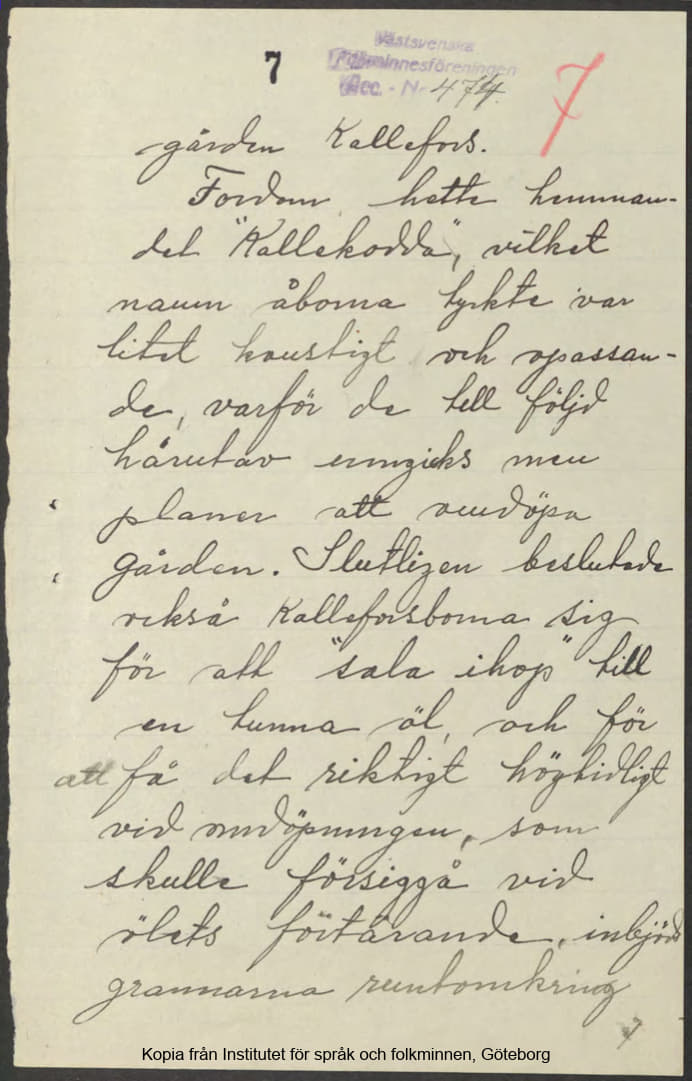 7
Västsvenska
Folkminnesföreningen
Acc. - Nr 474.
7
gården Kallefors.
Fordom hette hemman-
det "Kallekodda", vilket
namn åborna tyckte var
litet konstigt och opassan-
de, varför de till följd
härutav umgicks med
planer att omdöpa
gården. Slutligen beslutade
också Kalleforsborna sig
för att "sala ihop" till
en tunna öl, och för
att få det riktigt högtidligt
vid omdöpningen, som
skulle försiggå vid
ölets förtärande, inbjöds
grannarna runtomkring
Kopia från Institutet för språk och folkminnen, Göteborg